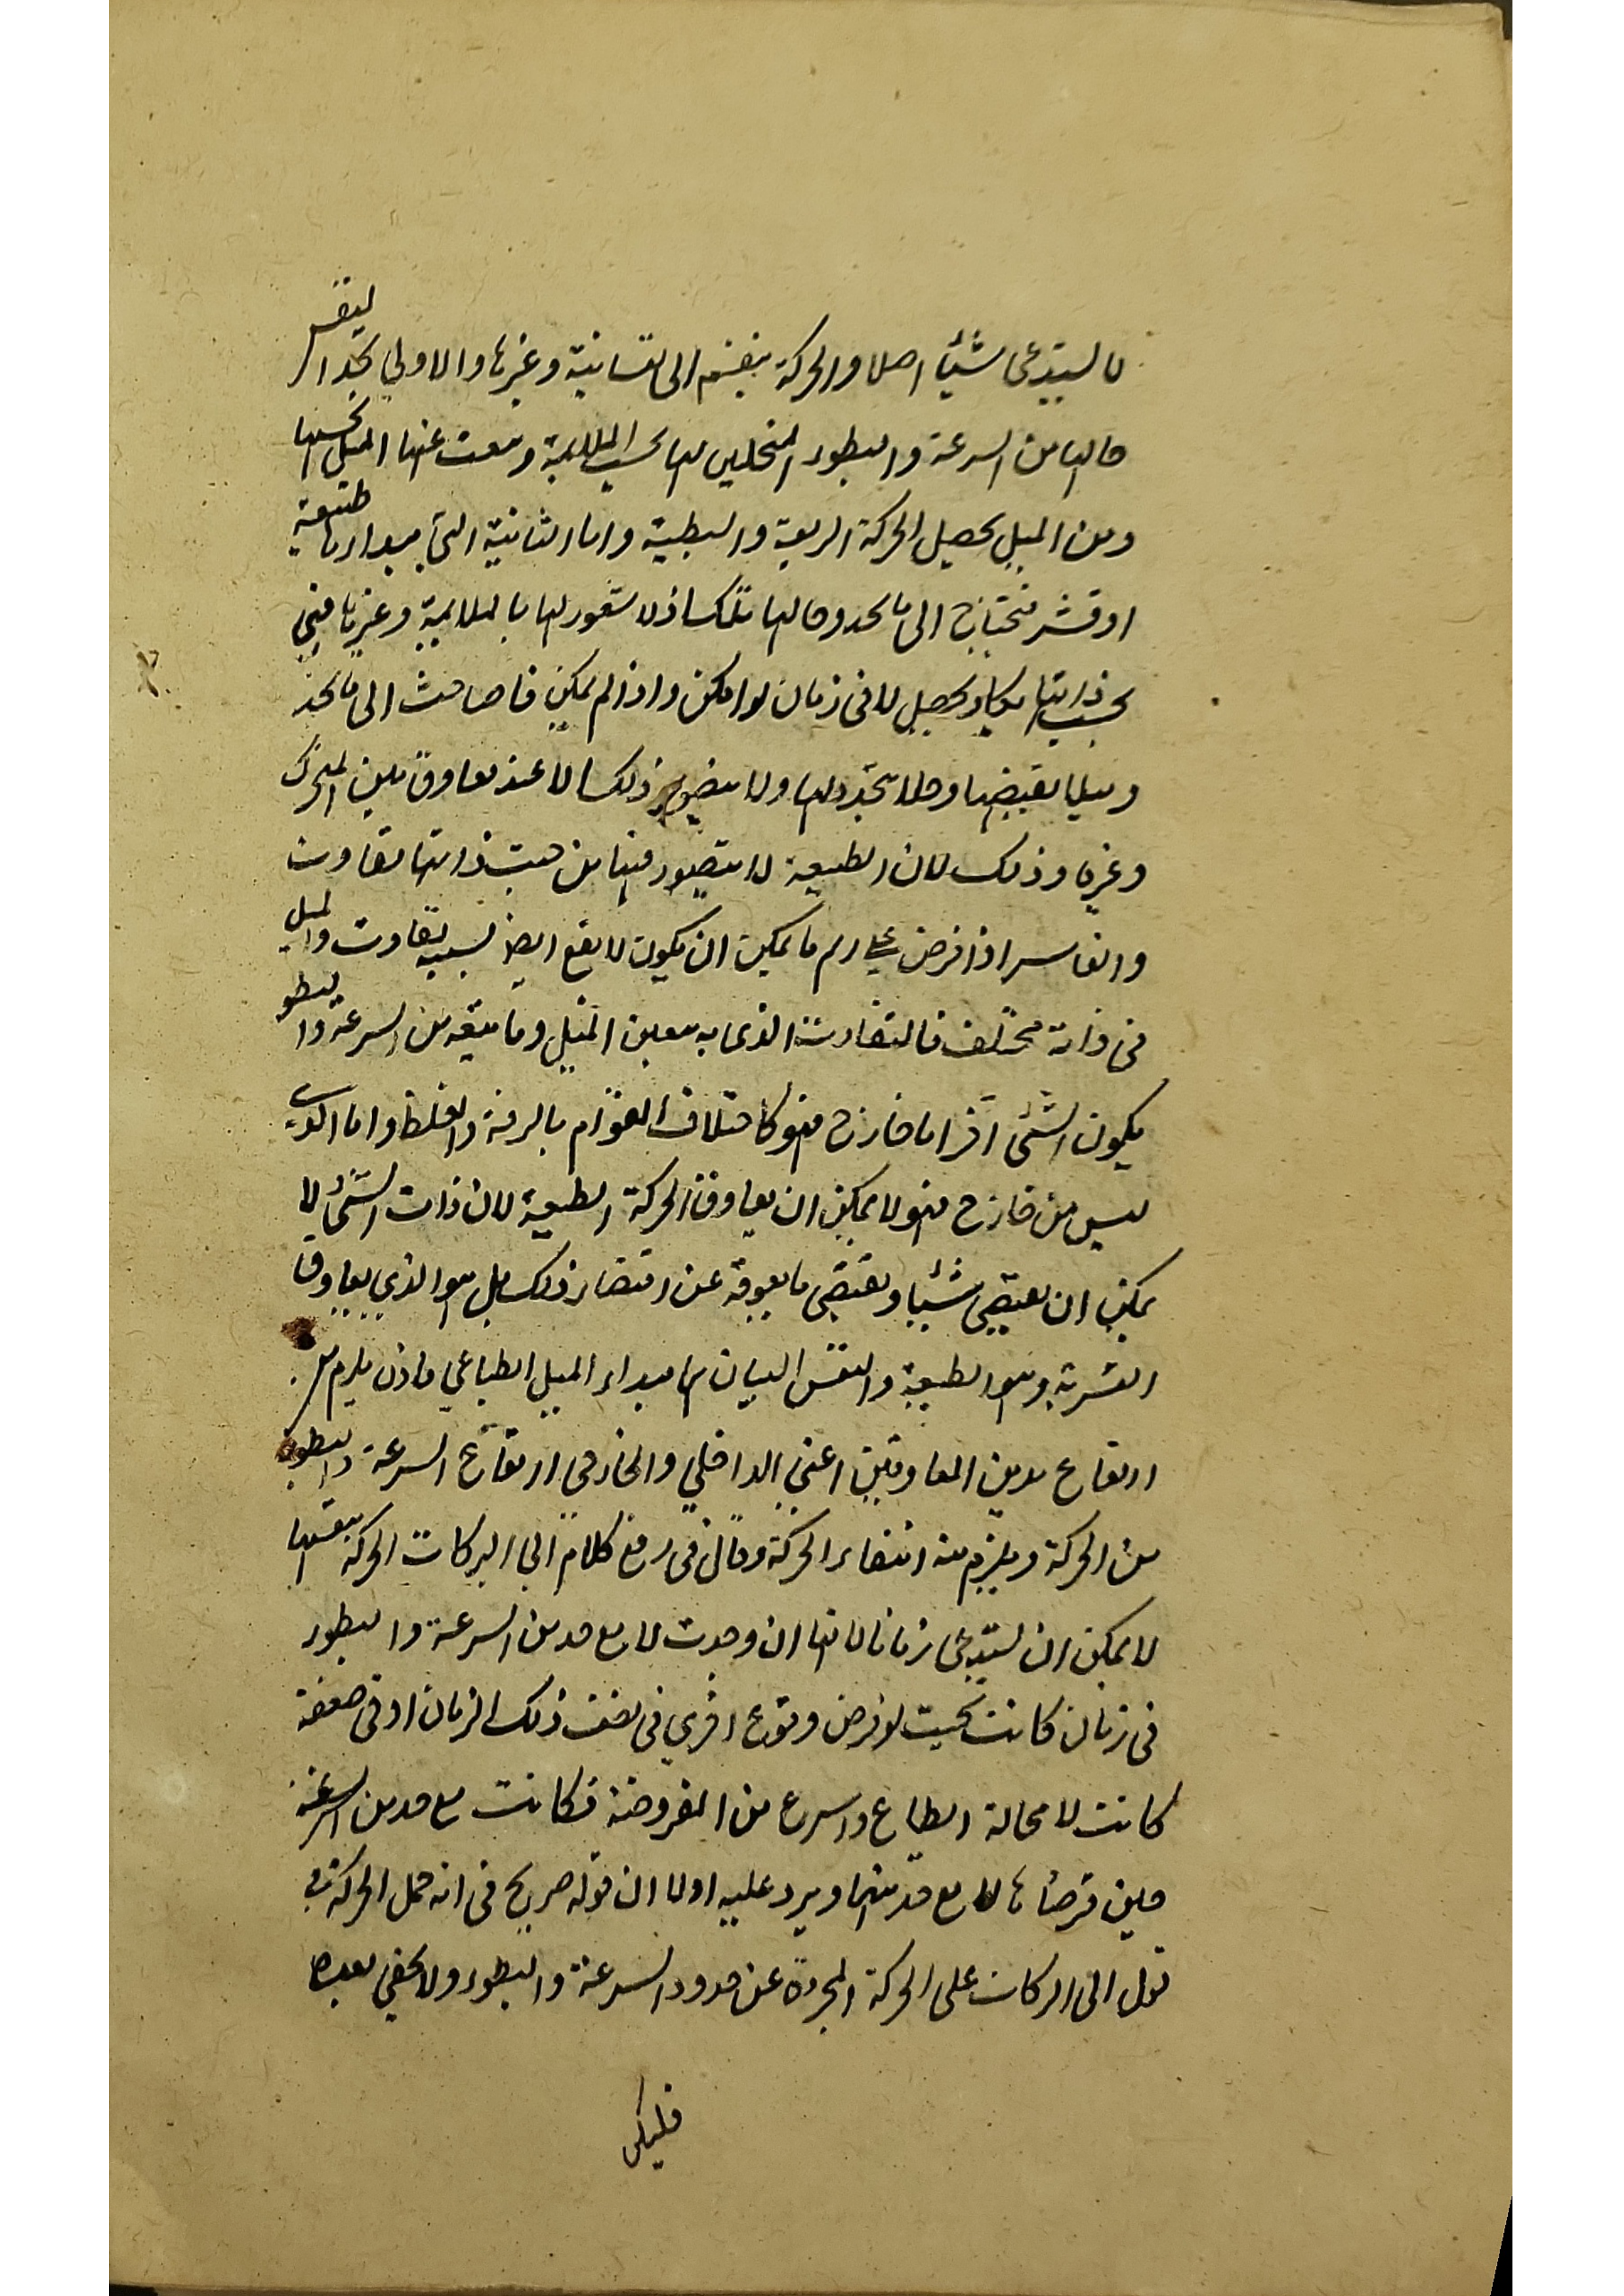 لا يستدعى شيئا اصلا والحركة ينقسم الى نفسانية وغيرها والاولى يحد النفس
حالها من السرعة والبطوء المتخيلين لها بحسب الملايمة وينبعث عنها الميل بحسبها
ومن الميل يحصل الحركة السريعة والبطيئة واما الثانية التى مبداءها طبيعة
او قسر فتحتاج الى ما يحدد حالها تلك اذ لا شعور لها بالملايمة وغيرها فهى
بحسب ذاتها يكاد يحصل لا فى زمان لو امكن واذا لم يمكن فاحتاجت الى ما يحد
وميلا يقتضيها وحالا تحدد لها ولا يتصور ذلك الا عند تعاوق بين المتحرك
وغيره وذلك لان الطبيعة لا يتصور فيها من حيث ذاتها تفاوت
والقاسر اذا فرض على اتم ما يمكن ان يكون لا يقع ايضا بسببه تفاوت والميل
فى ذاته مختلف فالتفاوت الذى به يتعين الميل وما يتبعه من السرعة والبطوء
يكون لشئ آخر اما خارج فهو كاختلاف القوام بالرقة والغلظ واما الذى
ليس من خارج فهو لا يمكن ان يعاوق الحركة الطبيعية لان ذات الشئ لا
يمكن ان يقتضى شيئا ويقتضى ما يعوقه عن اقتضاء ذلك بل هو الذى يعاوق
القسرية وهو الطبيعة والنفس اللتان هما مبداء الميل الطباعى فاذن يلزم من
ارتفاع هذين المعاوقين اعنى الداخلى والخارجى ارتفاع السرعة والبطوء
من الحركة ويلزم منه انتفاء الحركة وقال فى دفع كلام ابى البركات الحركة بنفسها
لا يمكن ان يستدعى زمانا لانها ان وجدت لا مع حد من السرعة والبطوء
فى زمان كانت بحيث لو فرض وقوع اخرى فى نصف ذلك الزمان او فى ضعفه
كانت لا محالة ابطاء او اسرع من المفروضة فكانت مع حد من السرعة
حين فرضناها لا مع حد منها ويرد عليه اولا ان قوله صريح فى انه حمل الحركة فى
قول ابى البركات على الحركة المجردة عن حدود السرعة والبطوء ولا يخفى بعده